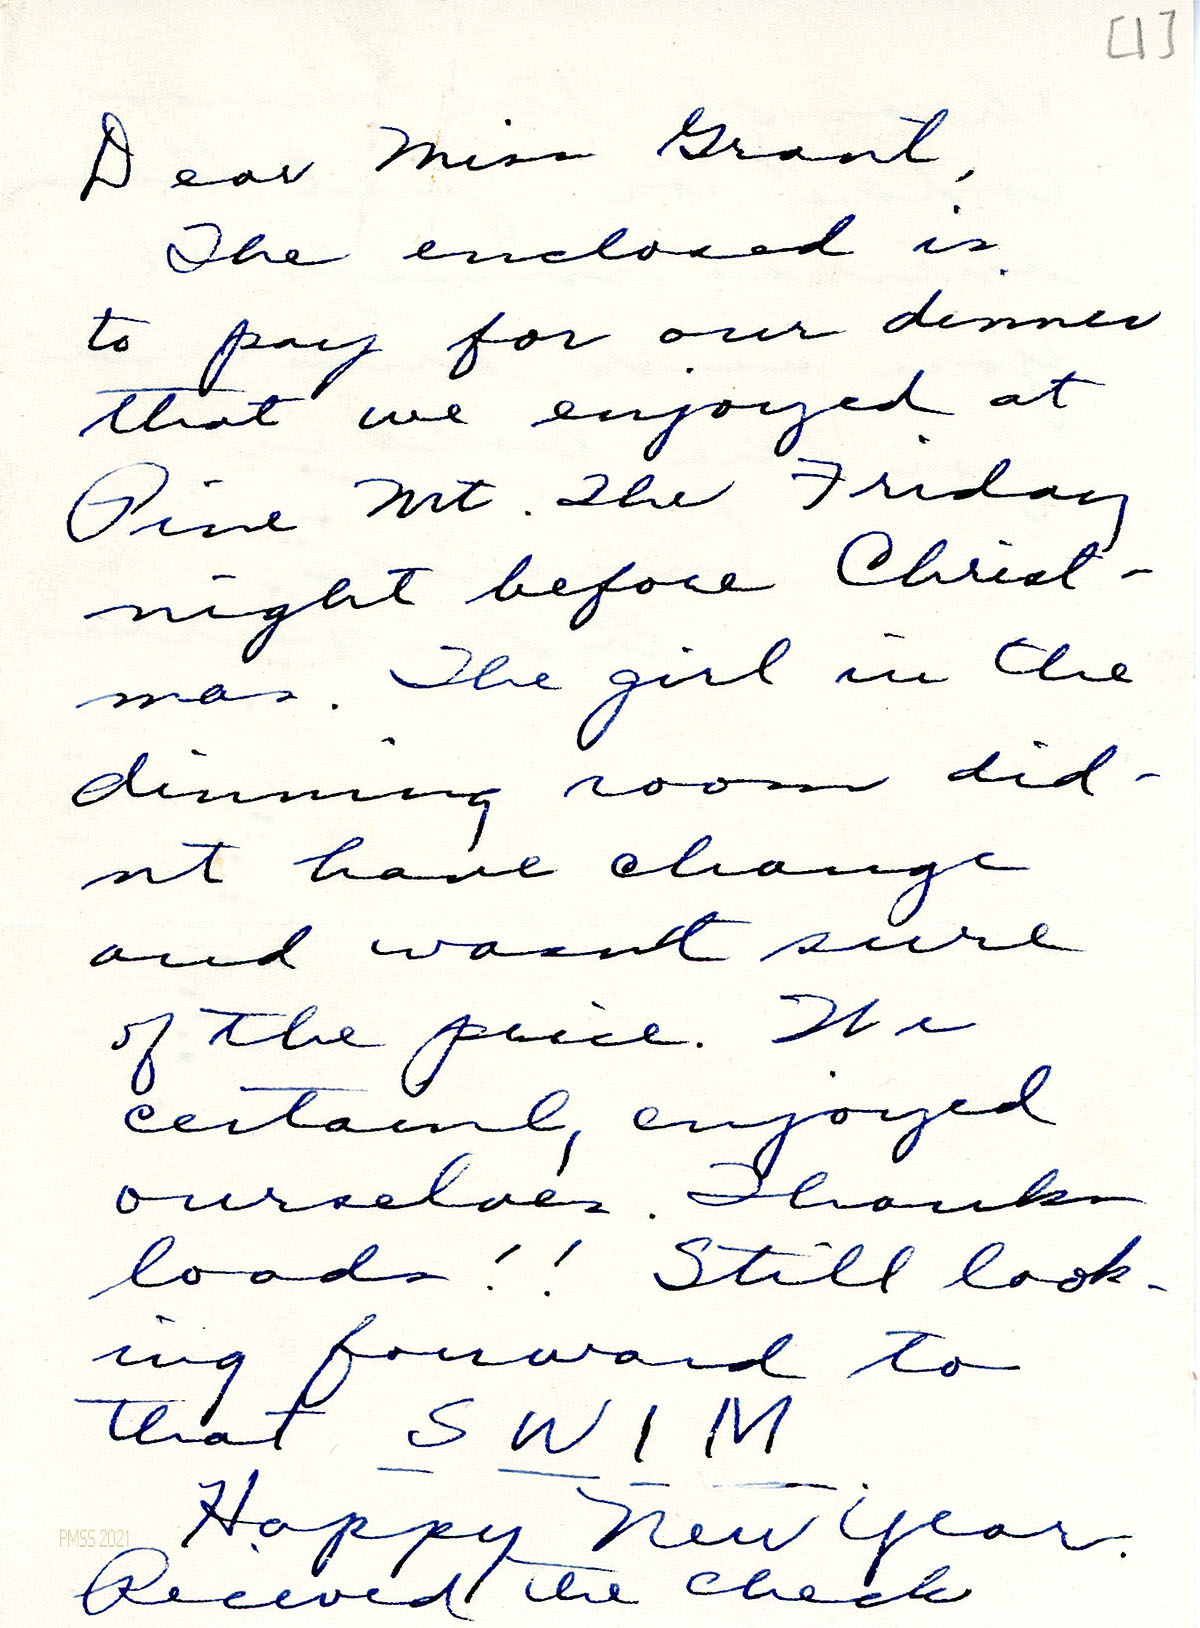 [1]
Dear Miss Grant,
The enclosed is
to pay for our dinner
that we enjoyed at
Pine Mt. the Friday
night before Christ-
mas. The girl in the
dinning room did-
nt have change
and wasn't sure
of the price. We
certainly enjoyed
ourselves. Thanks
loads!! Still look-
ing forward to
that SWIM
Happy New Year.
PMSS 2021
Recieved the check